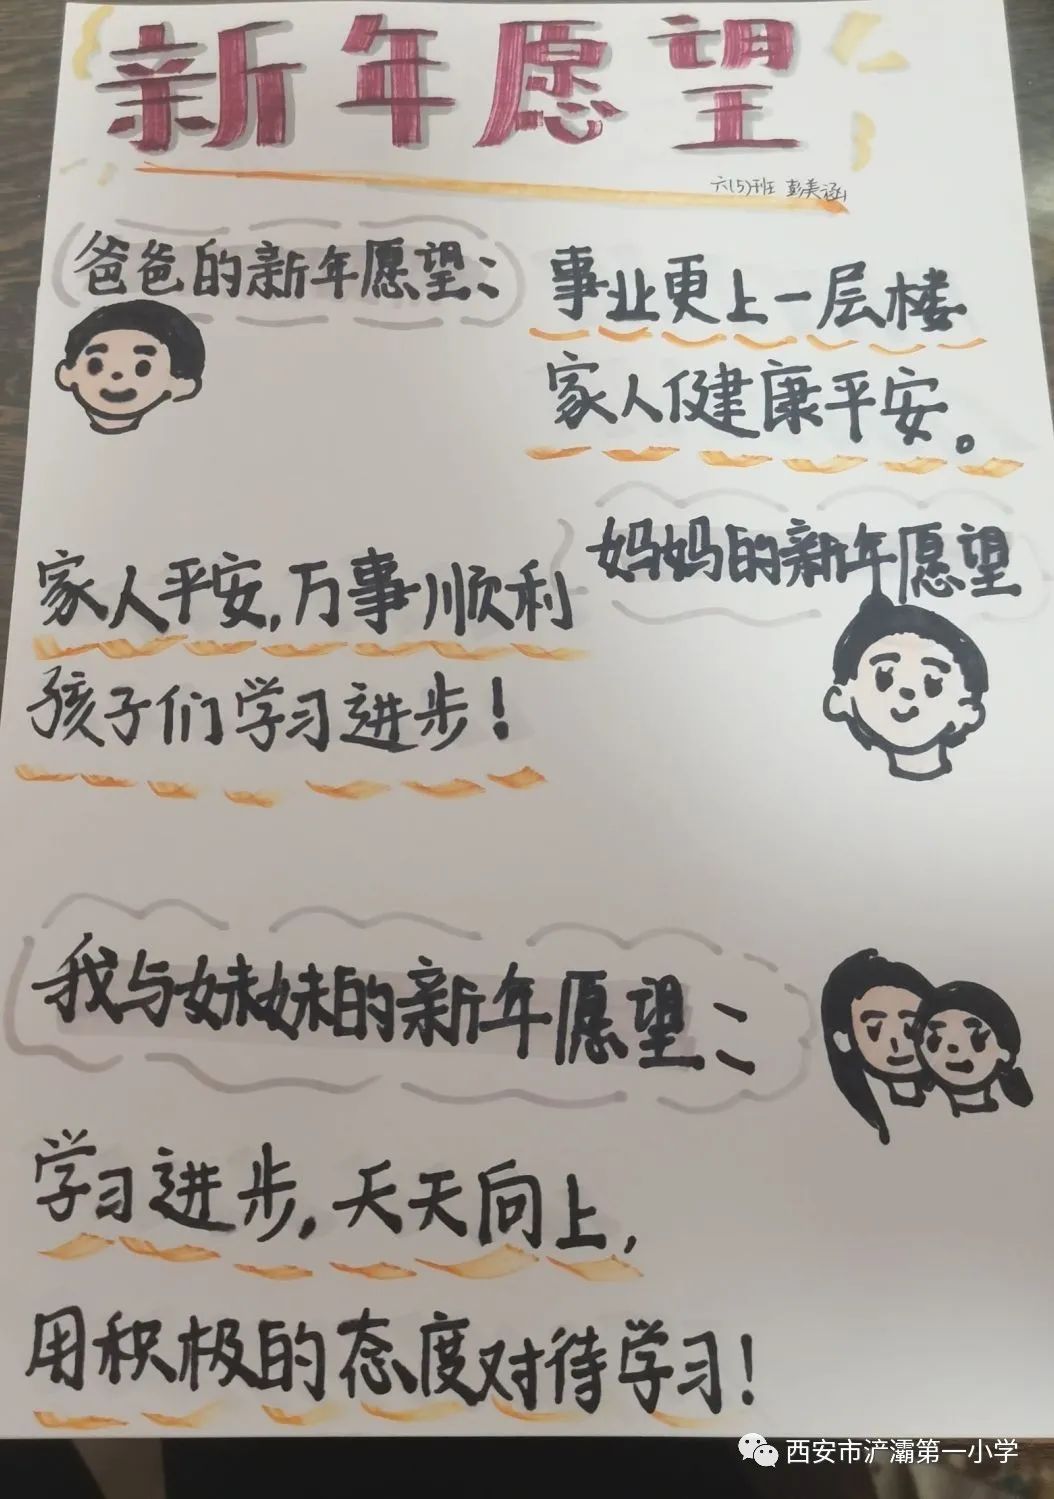 新年愿望
六(5)班 彭美涵
爸爸的新年愿望:
事业更上一层楼
家人健康平安。
妈妈的新年愿望
家人平安,万事顺利
孩子们学习进步!
我与妹妹的新年愿望:
学习进步,天天向上,
用积极的态度对待学习!
西安市浐灞第一小学